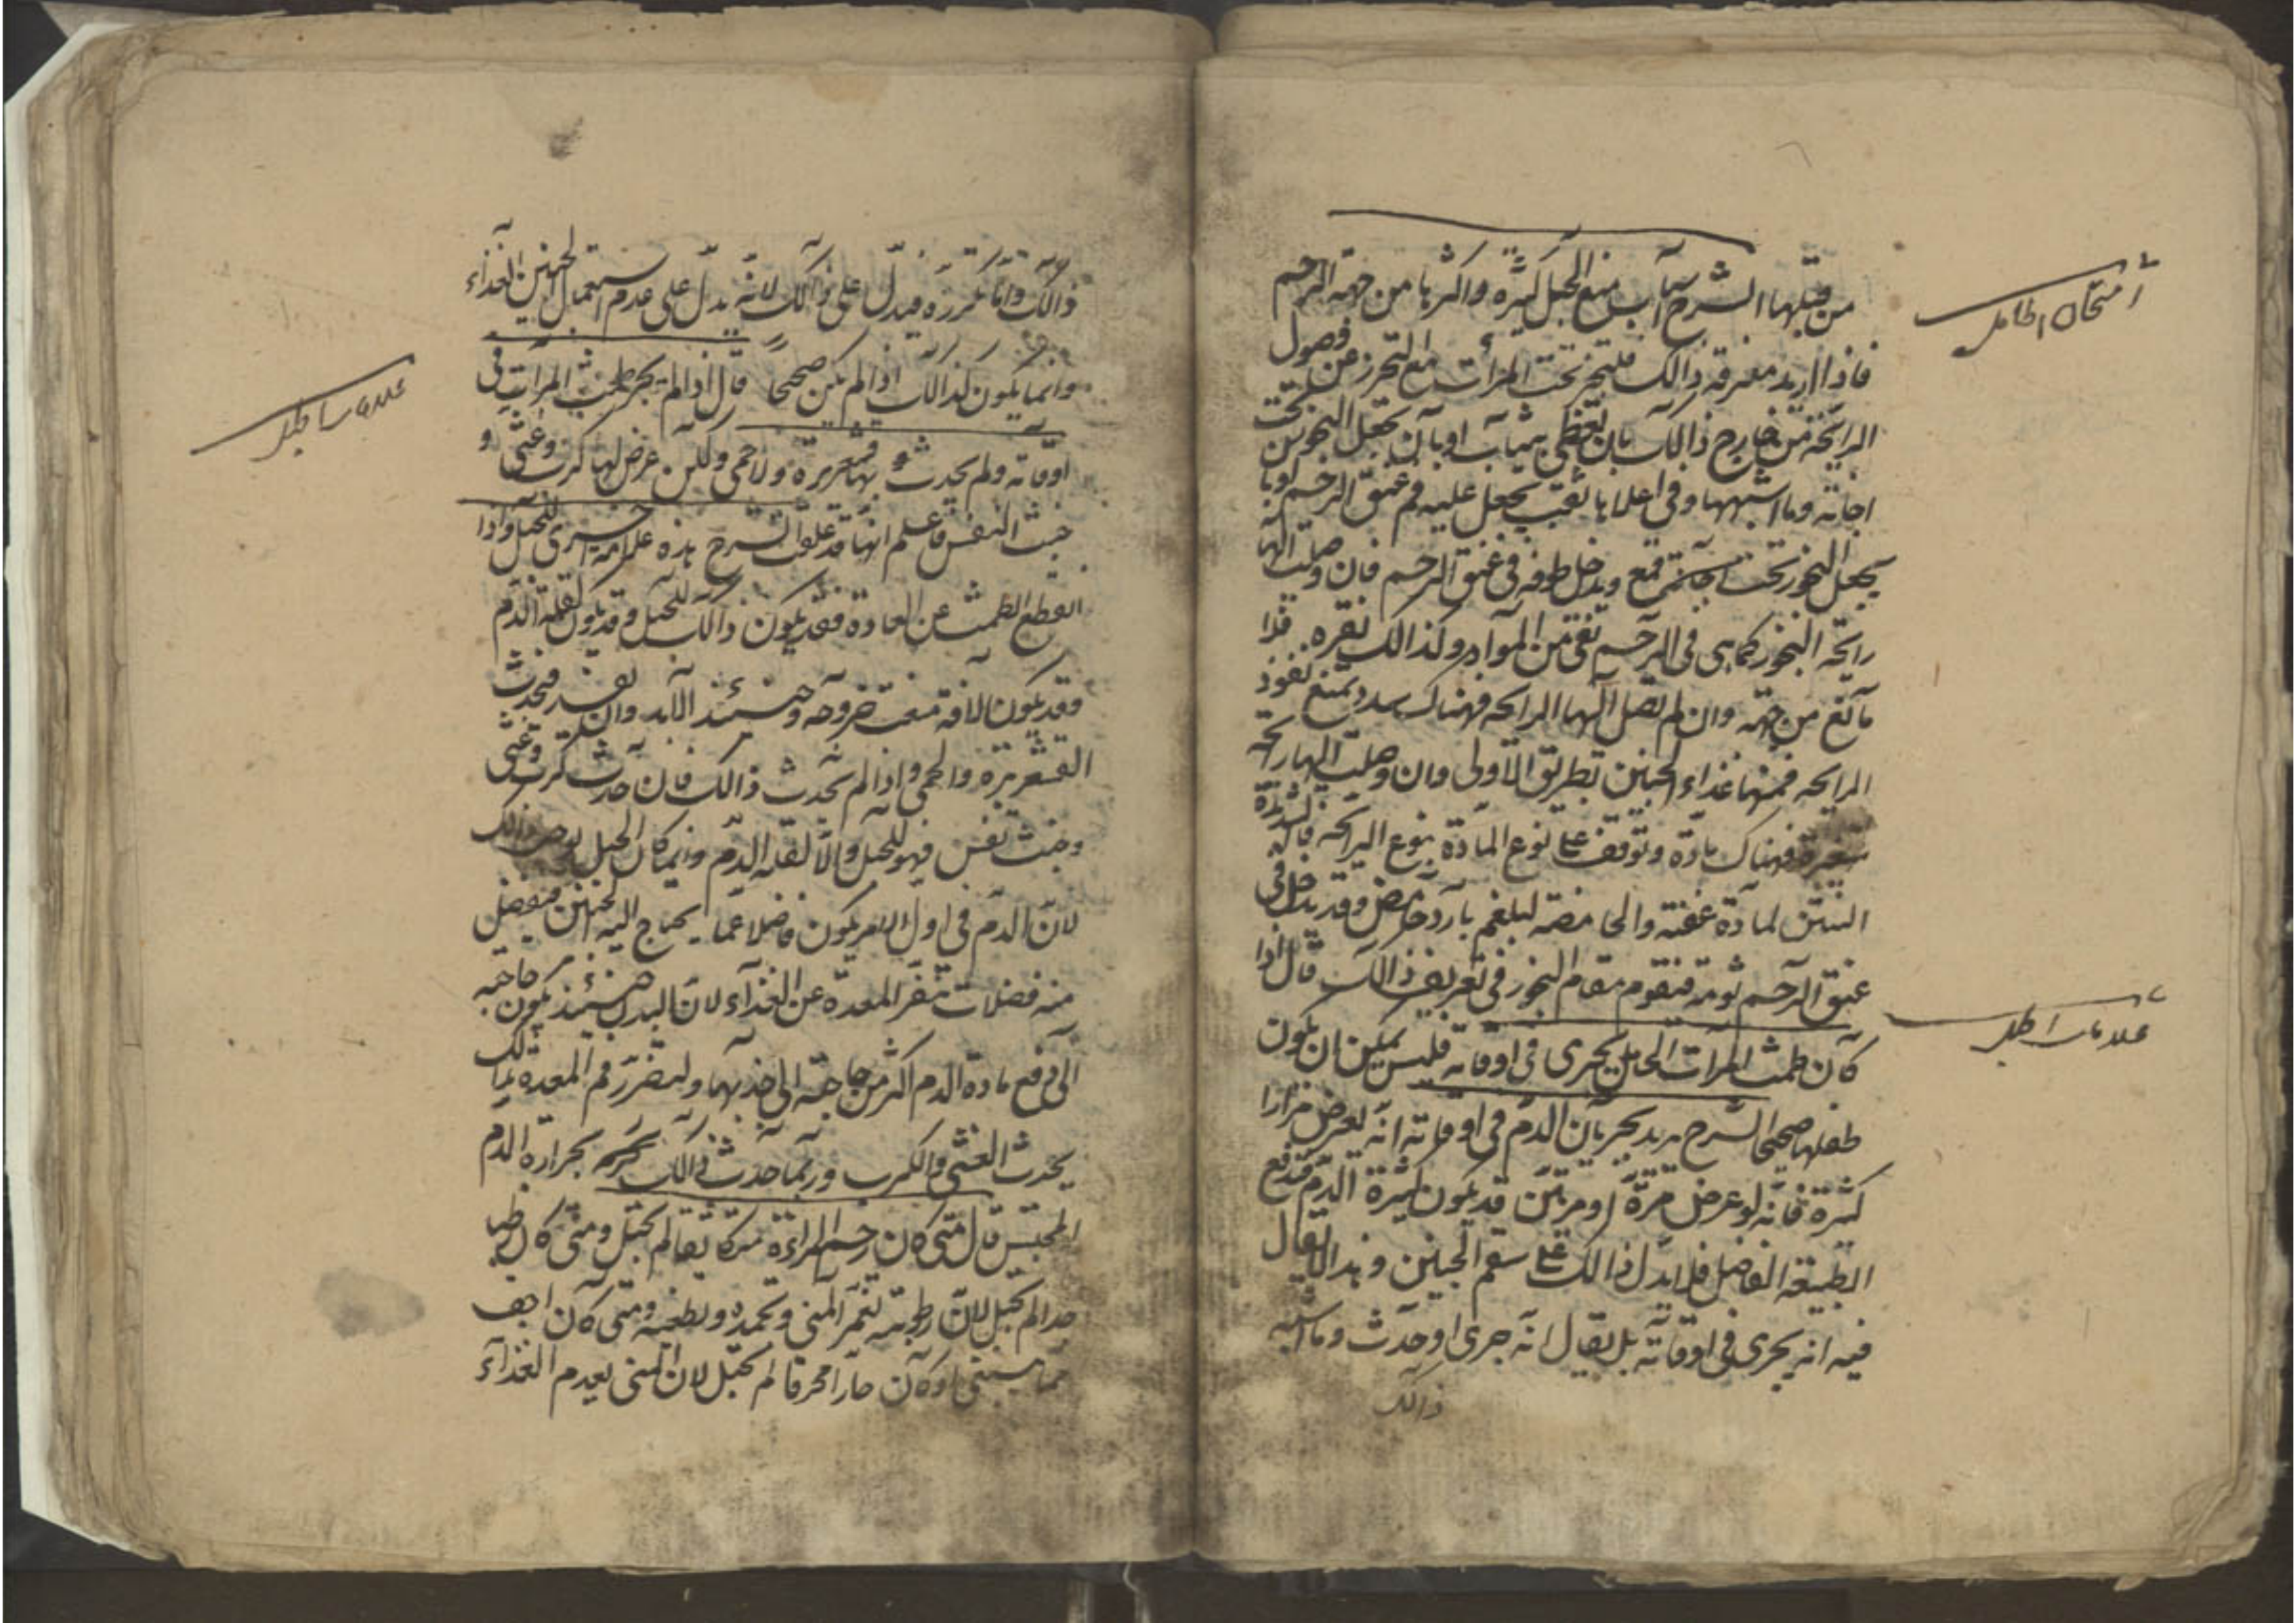 من قبلها الشرح اسباب منع الحبل كثيرة واكثرها من جهة الرحم
فاذا اريد معرفة ذالك فلتبخر تحت المرأت مع التحرز عن فصول
الرايحة من خارج ذالك بان تغطى بثياب او بان يجعل البخور تحت
اجانة وما اشبهها وفى اعلاها ثقب يجعل عليه فم عنق الرحم او بان
يجعل البخور تحت قمع ويدخل طرفه فى عنق الرحم فان وصلت اليها
رايحة البخور كما هى فى الرحم نقى من المواد وكذالك نفره فلا
مانع من جهته وان لم تصل اليها الرايحه فهناك سدد تمنع نفوذ
الرايحه فمنها غذاء الجنين بطريق الاولى وان وصلت اليها رايحة
متغيرة فهناك مادة وتوقف على نوع المادة بنوع الرايحه فالشديدة
النتن لمادة عفنة والحامضة لبلغم بارد حامض وقد يدخل فى
عنق الرحم ثومة فتقوم مقام البخور فى تعريف ذالك قال اذا
كان طمث المرآت الحامل يجرى فى اوقاته فليس يمكن ان يكون
طفلها صحيحا الشرح يريد بجريان الدم فى اوقاته انه يعرض مرارا
كثيرة فانه لو عرض مرة او مرتين قد يكون لكثرة الدم فتدفع
الطبيعة الفاضل فلا يدل ذالك على سقم الجنين وهذا لا يقال
فيه انه يجرى فى اوقاته بل يقال انه جرى او حدث وما اشبه
ذالك
امتحان الحامل
علامات الحبل
ذالك وانما تكرره فيدل على ذالك لانه يدل على عدم استعمال الجنين الغذاء
وانما يكون كذالك اذا لم يكن صحيحا قال اذا لم يجر طمث المرآت فى
اوقاته ولم يحدث بها قشعريرة ولا حمى ولكن عرض لها كرب وغثى و
خبث النفس فاعلم انها قد علقت الشرح هذه علامة اخرى للحبل واذا
انقطع الطمث عن العادة فقد يكون ذالك للحبل وقد يكون لقلة الدم
وقد يكون لآفة منعت خروجه وحينئذ لا بد وان يفسد فيحدث
القشعريرة والحمى واذا لم يحدث ذالك فان حدث كرب وغثى
وخبث نفس فهو للحبل والا لقلة الدم وانما كان الحبل يوجب ذالك
لان الدم فى اول الامر يكون فاضلا عما يحتاج اليه الجنين فيفضل
منه فضلات تنفر المعدة عن الغذاء لان البدن حينئذ يكون حاجته
الى دفع مادة الدم اكثر من حاجته الى جذبها ولتضرر فم المعدة بذالك
يحدث الغثى والكرب وربما حدث ذالك بحرارة الدم
المحتبس قال متى كان رحم المراءة متكاثفا لم تحبل ومتى كان رطبا
جدا لم تحبل لان رطوبته تغمر المنى وتجمده وتطفيه ومتى كان اجف
مما ينبغى او كان حارا محرقا لم تحبل لان المنى يعدم الغذاء
علامات الحبل